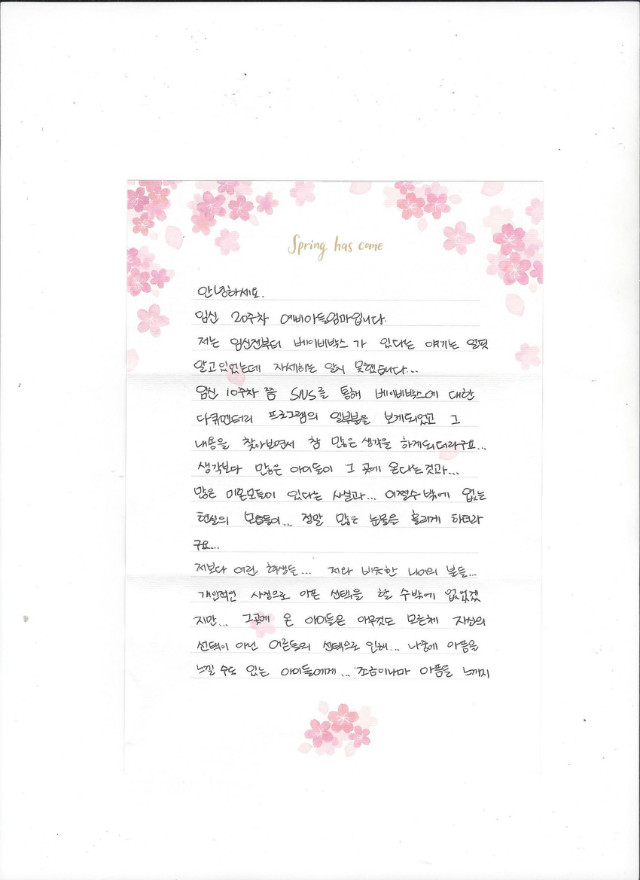 Spring has come
안녕하세요.
임신 20주차 예비아들엄마입니다.
저는 임신전부터 베이비박스가 있다는 얘기는 얼핏
알고있었는데 자세히는 알지 못했습니다..
임신 10주차 쯤 SNS를 통해 베이비박스에 대한
다큐멘터리 프로그램의 일부분을 보게되었고 그
내용을 찾아보면서 참 많은 생각을 하게되더라구요...
생각보다 많은 아이들이 그 곳에 온다는것과...
많은 미혼모들이 있다는 사실과... 어쩔수밖에 없는
현실의 모습들이... 정말 많은 눈물을 흘리게 하더라
구요...
저보다 어린 학생들... 저와 비슷한 나이의 분들...
개인적인 사정으로 아픈 선택을 할 수밖에 없었겠
지만... 그곳에 온 아이들은 아무것도 모른체 자신의
선택이 아닌 어른들의 선택으로 인해... 나중에 아픔을
느낄 수도 있는 아이들에게... 조금이나마 아픔을 느끼지